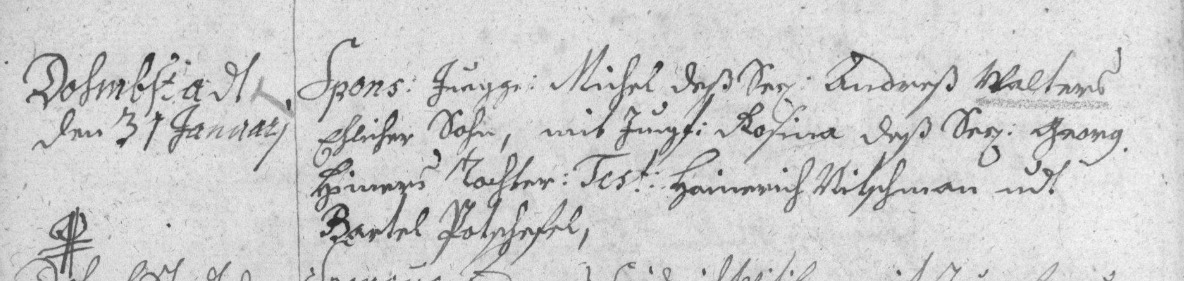 Dohmbstadt
den 31 January
Spons: Jungg: Michel deß Sey: Andreß Walters
Ehlicher Sohn, mit Jungf: Rosina deß Sey: Georg
Heiners Tochter: Test: Hainerich Nitschman udt
Bartel Potschefel,